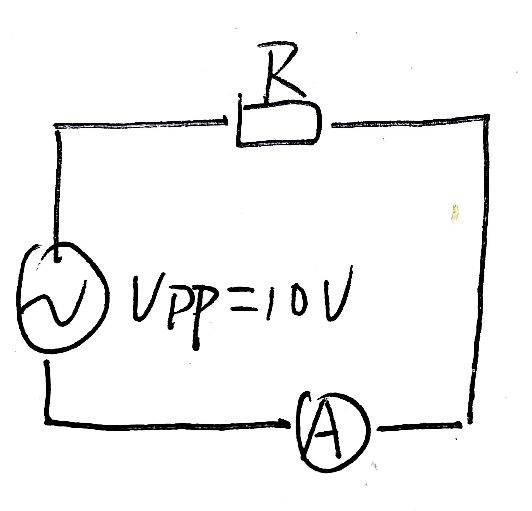 R
VPP=10V
A